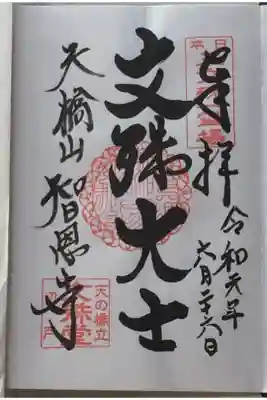 奉拝
令和元年
六月二十六日
文殊大士
天橋山
智恩寺
日本
天の橋立
文殊堂